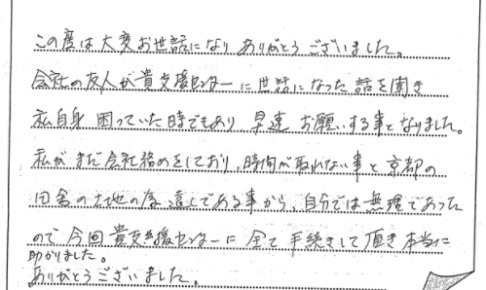 この度は大変お世話になり ありがとうございました。
会社の友人が貴支援センターに世話になった話を聞き
私自身 困っていた時でもあり 早速 お願いする事となりました。
私がまだ会社務めをしており、時間が取れない事と京都の
田舎の土地の為 遠しである事から、自分では無理であった
ので 今回 貴支援センターに 全て 手続きして頂き 本当に
助かりました。
ありがとうございました。